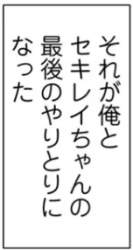 それが俺と
セキレイちゃんの
最後のやりとりに
なった